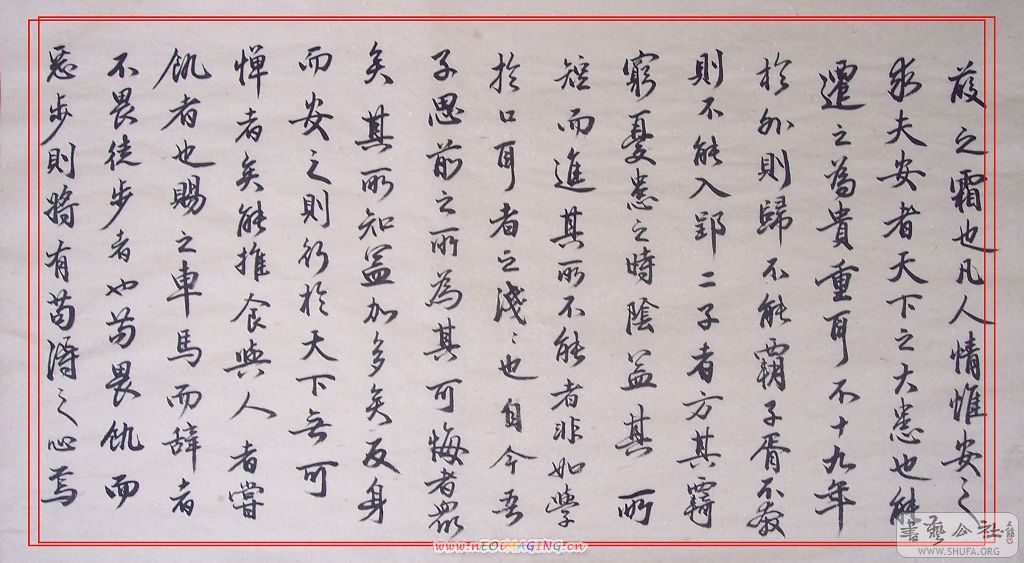 葭之霜也凡人情惟安之
求夫安者天下之大患也能
遷之為貴重耳不十九年
於外則歸不能霸子胥不奔
則不能入郢二子者方其羇
窮憂患之時陰益其所
短而進其所不能者非如學
於口耳者之淺〻也自今吾
子思前之所為其可悔者眾
矣其所知益加多矣反身
而安之則行於天下無可
憚者矣能推食與人者嘗
飢者也賜之車馬而辭者
不畏徒步者也苟畏飢而
惡步則將有苟得之心焉
www.nEOiMAGING.cn
書藝公社
WWW.SHUFA.ORG